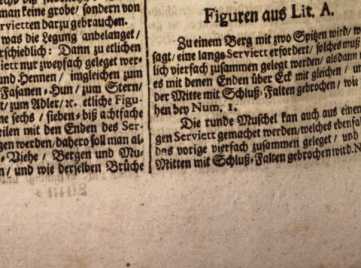 man keine grobe/ sondern von
ervietten darzu gebrauchen.
was die Legung anbelanget/
erschiedlich: Dann zu etlichen
iett nur zweyfach geleget wer-
und Hennen/ imgleichen zum
Fasanen-Hun/ zum Stern/
t/ zum Adler/ ꝛc. etliche Figu-
ne sechs/ sieben-biß achtfache
eilen mit den Enden des Ser-
gen werden/ dahero soll man al-
-Viehe/ Bergen und Mu-
n/ und wie derselben Brüche
Figuren aus Lit. A.
Zu einem Berg mit zwo Spitzen wird/ w
sagt/ eine langs Serviett erfordert/ solches muß
lich vierfach zusammen gelegt werden/ alsdann
es mit denen Enden über Eck mit gleichen/ in
der Mitte mit Schluß-Falten gebrochen/ wie
hen bey Num. 1.
Die runde Muschel kan auch aus eine
gen Serviett gemachet werden/ welches ebenfal
das vorige vierfach zusammen geleget/ und
Mitten mit Schluß-Falten gebrochen wird. N